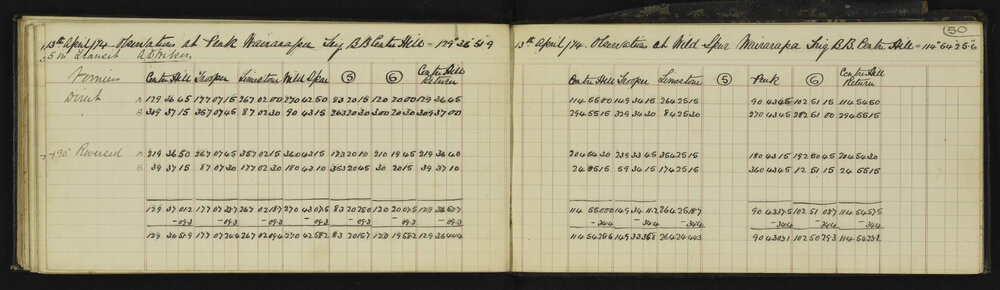 13th April /74. Observations at Peak Wairarapa Trig B.B. Centre Hill = 129° 36' 51"9
5 in Transit A.D. Wilson
Verniers Centre Hill Trooper Limestone Wild Spur 5 6 Centre Hill Return
Direct A 129 36 45 177 07 15 267 02 00 270 42 50 83 20 15 120 20 00 129 36 45
B 309 37 15 357 07 45 87 02 30 90 43 15 263 20 30 300 20 30 309 37 00
+90° Reversed A 219 36 50 267 07 45 357 02 15 360 43 15 173 20 10 210 19 45 219 36 40
B 39 37 15 87 07 30 177 02 30 180 43 10 353 20 45 30 20 15 39 37 10
129 37 01 2 177 07 33 7 267 02 18 7 270 43 07 5 83 20 25 0 120 20 07 5 129 36 53 7
-09.3 -09.3 -09.3 -09.3 -09.3
129 36 51 9 177 07 24 4 267 02 09 4 270 42 58 2 83 20 16 7 120 19 58 2 129 36 44 4
50
13th April /74. Observation at Wild Spur Wairarapa Trig B.B. Centre Hill = 114° 54' 25"6
Centre Hill Trooper Limestone 5 Peak 6 Centre Hill Return
114 55 00 149 34 15 264 25 15 90 43 45 102 51 15 114 54 50
294 55 15 329 34 30 84 25 30 270 43 45 282 51 00 294 55 15
204 54 30 239 33 45 354 25 15 180 43 15 192 50 45 204 54 30
24 55 15 59 34 15 174 25 15 360 43 45 12 51 15 24 55 15
114 55 00 0 149 34 11 2 264 25 18 7 90 43 37 5 102 51 03 7 114 54 57 5
-34.4 -34.4 -34.4 -34.4 -34.4
114 54 25 6 149 33 36 8 264 24 44 3 90 43 03 1 102 50 29 3 114 54 23 1